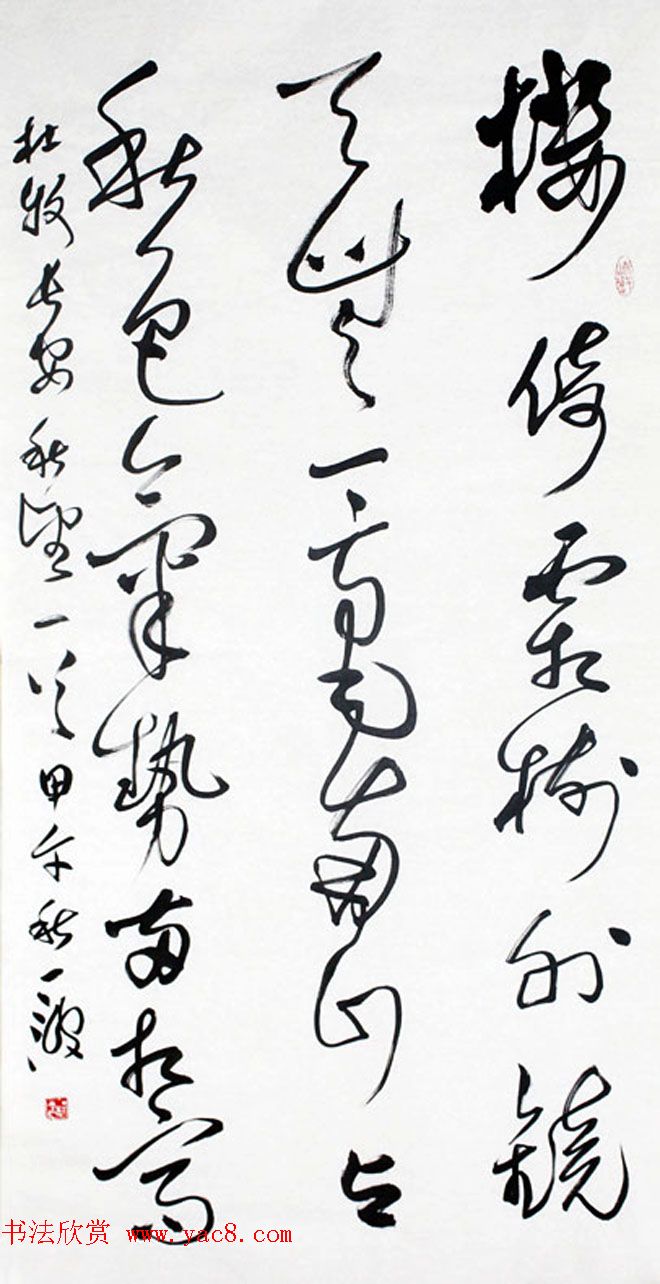 樓倚霜樹外鏡
天無一毫南山与
秋色氣勢兩相高
杜牧長安秋望一首甲午秋一
书法欣赏 www.yac8.com